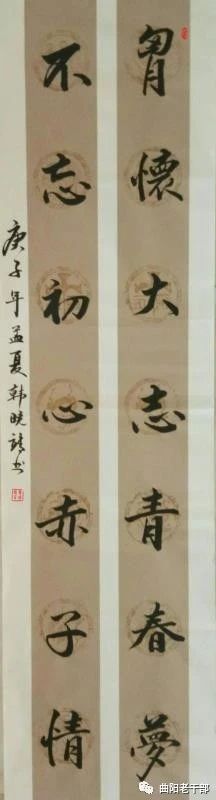 胷懷大志青春夢
不忘初心赤子情
庚子年孟夏韩晓书
曲阳老干部